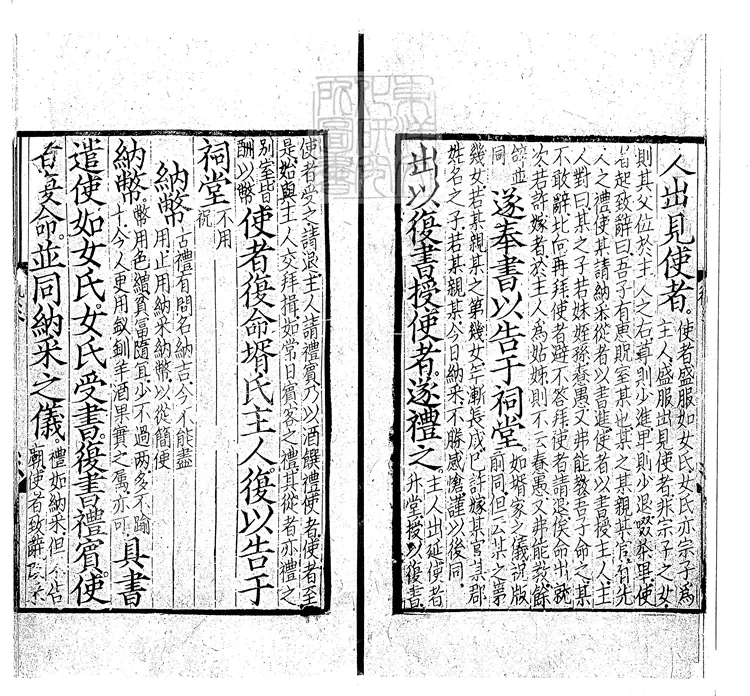 人出見使者。使者盛服如女氏女氏亦宗子為
主人盛服出見使者非宗子之女
則其父位於主人之右尊則少進卑則少退啜茶畢使
者起致辭曰吾子有惠貺室某也某之某親某官有先
人之禮使某請納采從者以書進使者以書授主人主
人對曰某之子若妹姪孫惷愚又弗能教吾子命之某
不敢辭北向再拜使者避不答拜使者請退俟命出就
次若許嫁者於主人為姑姊則不云惷愚又弗能教餘
辭並
同
遂奉書以告于祠堂。如婿家之儀祝版
前同但云某之第
幾女若某親某之第幾女年漸長成已許嫁某官某郡
姓名之子若某親某今日納采不勝感愴謹以後同
出以復書授使者。遂禮之。主人出延使者
升堂授以復書
使者受之請退主人請禮賓乃以酒饌禮使者使者至
是始與主人交拜揖如常日賓客之禮其從者亦禮之
別室皆
酬以幣
使者復命壻氏主人。復以告于
祠堂不用
祝
納幣古禮有問名納吉今不能盡
用止用納采納幣以從簡便
納幣。幣用色繒貧富隨宜少不過兩多不踰
十今人更用釵釧羊酒果實之屬亦可
具書
遣使如女氏。女氏受書。復書禮賓。使
者復命。並同納采之儀。禮如納采但不告
廟使者致辭改采